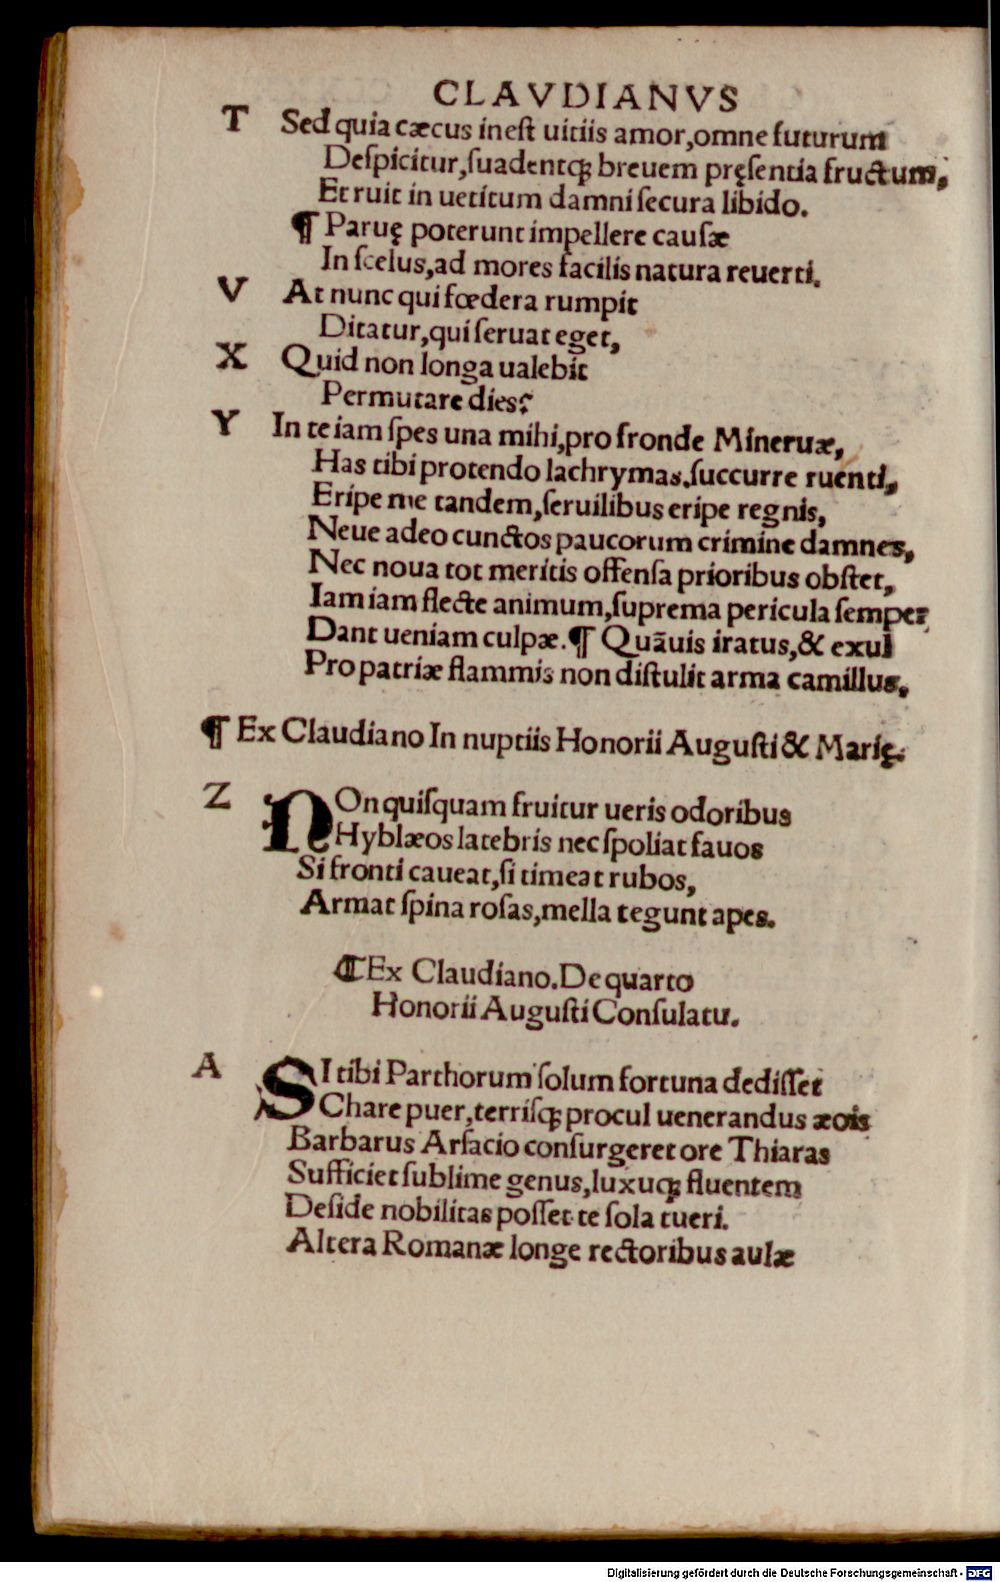 CLAVDIANVS
T Sed quia cæcus inest uitiis amor,omne futurum
Despicitur,suadentq́ꝫ breuem pręsentia fructum,
Et ruit in uetitum damni secura libido.
¶ Paruę poterunt impellere causæ
In scelus,ad mores facilis natura reuerti.
V At nunc qui fœdera rumpit
Ditatur,qui seruat eget,
X Quid non longa ualebit
Permutare dies?
Y In te iam spes una mihi,pro fronde Mineruæ,
Has tibi protendo lachrymas.succurre ruenti,
Eripe me tandem,seruilibus eripe regnis,
Neue adeo cunctos paucorum crimine damnes,
Nec noua tot meritis offensa prioribus obstet,
Iam iam flecte animum,suprema pericula semper
Dant ueniam culpæ.¶ Quãuis iratus,& exul
Pro patriæ flammis non distulit arma camillus.
¶ Ex Claudiano In nuptiis Honorii Augusti & Marię.
Z NOn quisquam fruitur ueris odoribus
Hyblæos latebris nec spoliat fauos
Si fronti caueat,si timeat rubos,
Armat spina rosas,mella tegunt apes.
¶Ex Claudiano.De quarto
Honorii Augusti Consulatu.
A SI tibi Parthorum solum fortuna dedisset
Chare puer,terrisqꝫ procul uenerandus æois
Barbarus Arsacio consurgeret ore Thiaras
Sufficiet sublime genus,luxuqꝫ fluentem
Deside nobilitas posset te sola tueri.
Altera Romanæ longe rectoribus aulæ
Digitalisierung gefördert durch die Deutsche Forschungsgemeinschaft - DFG